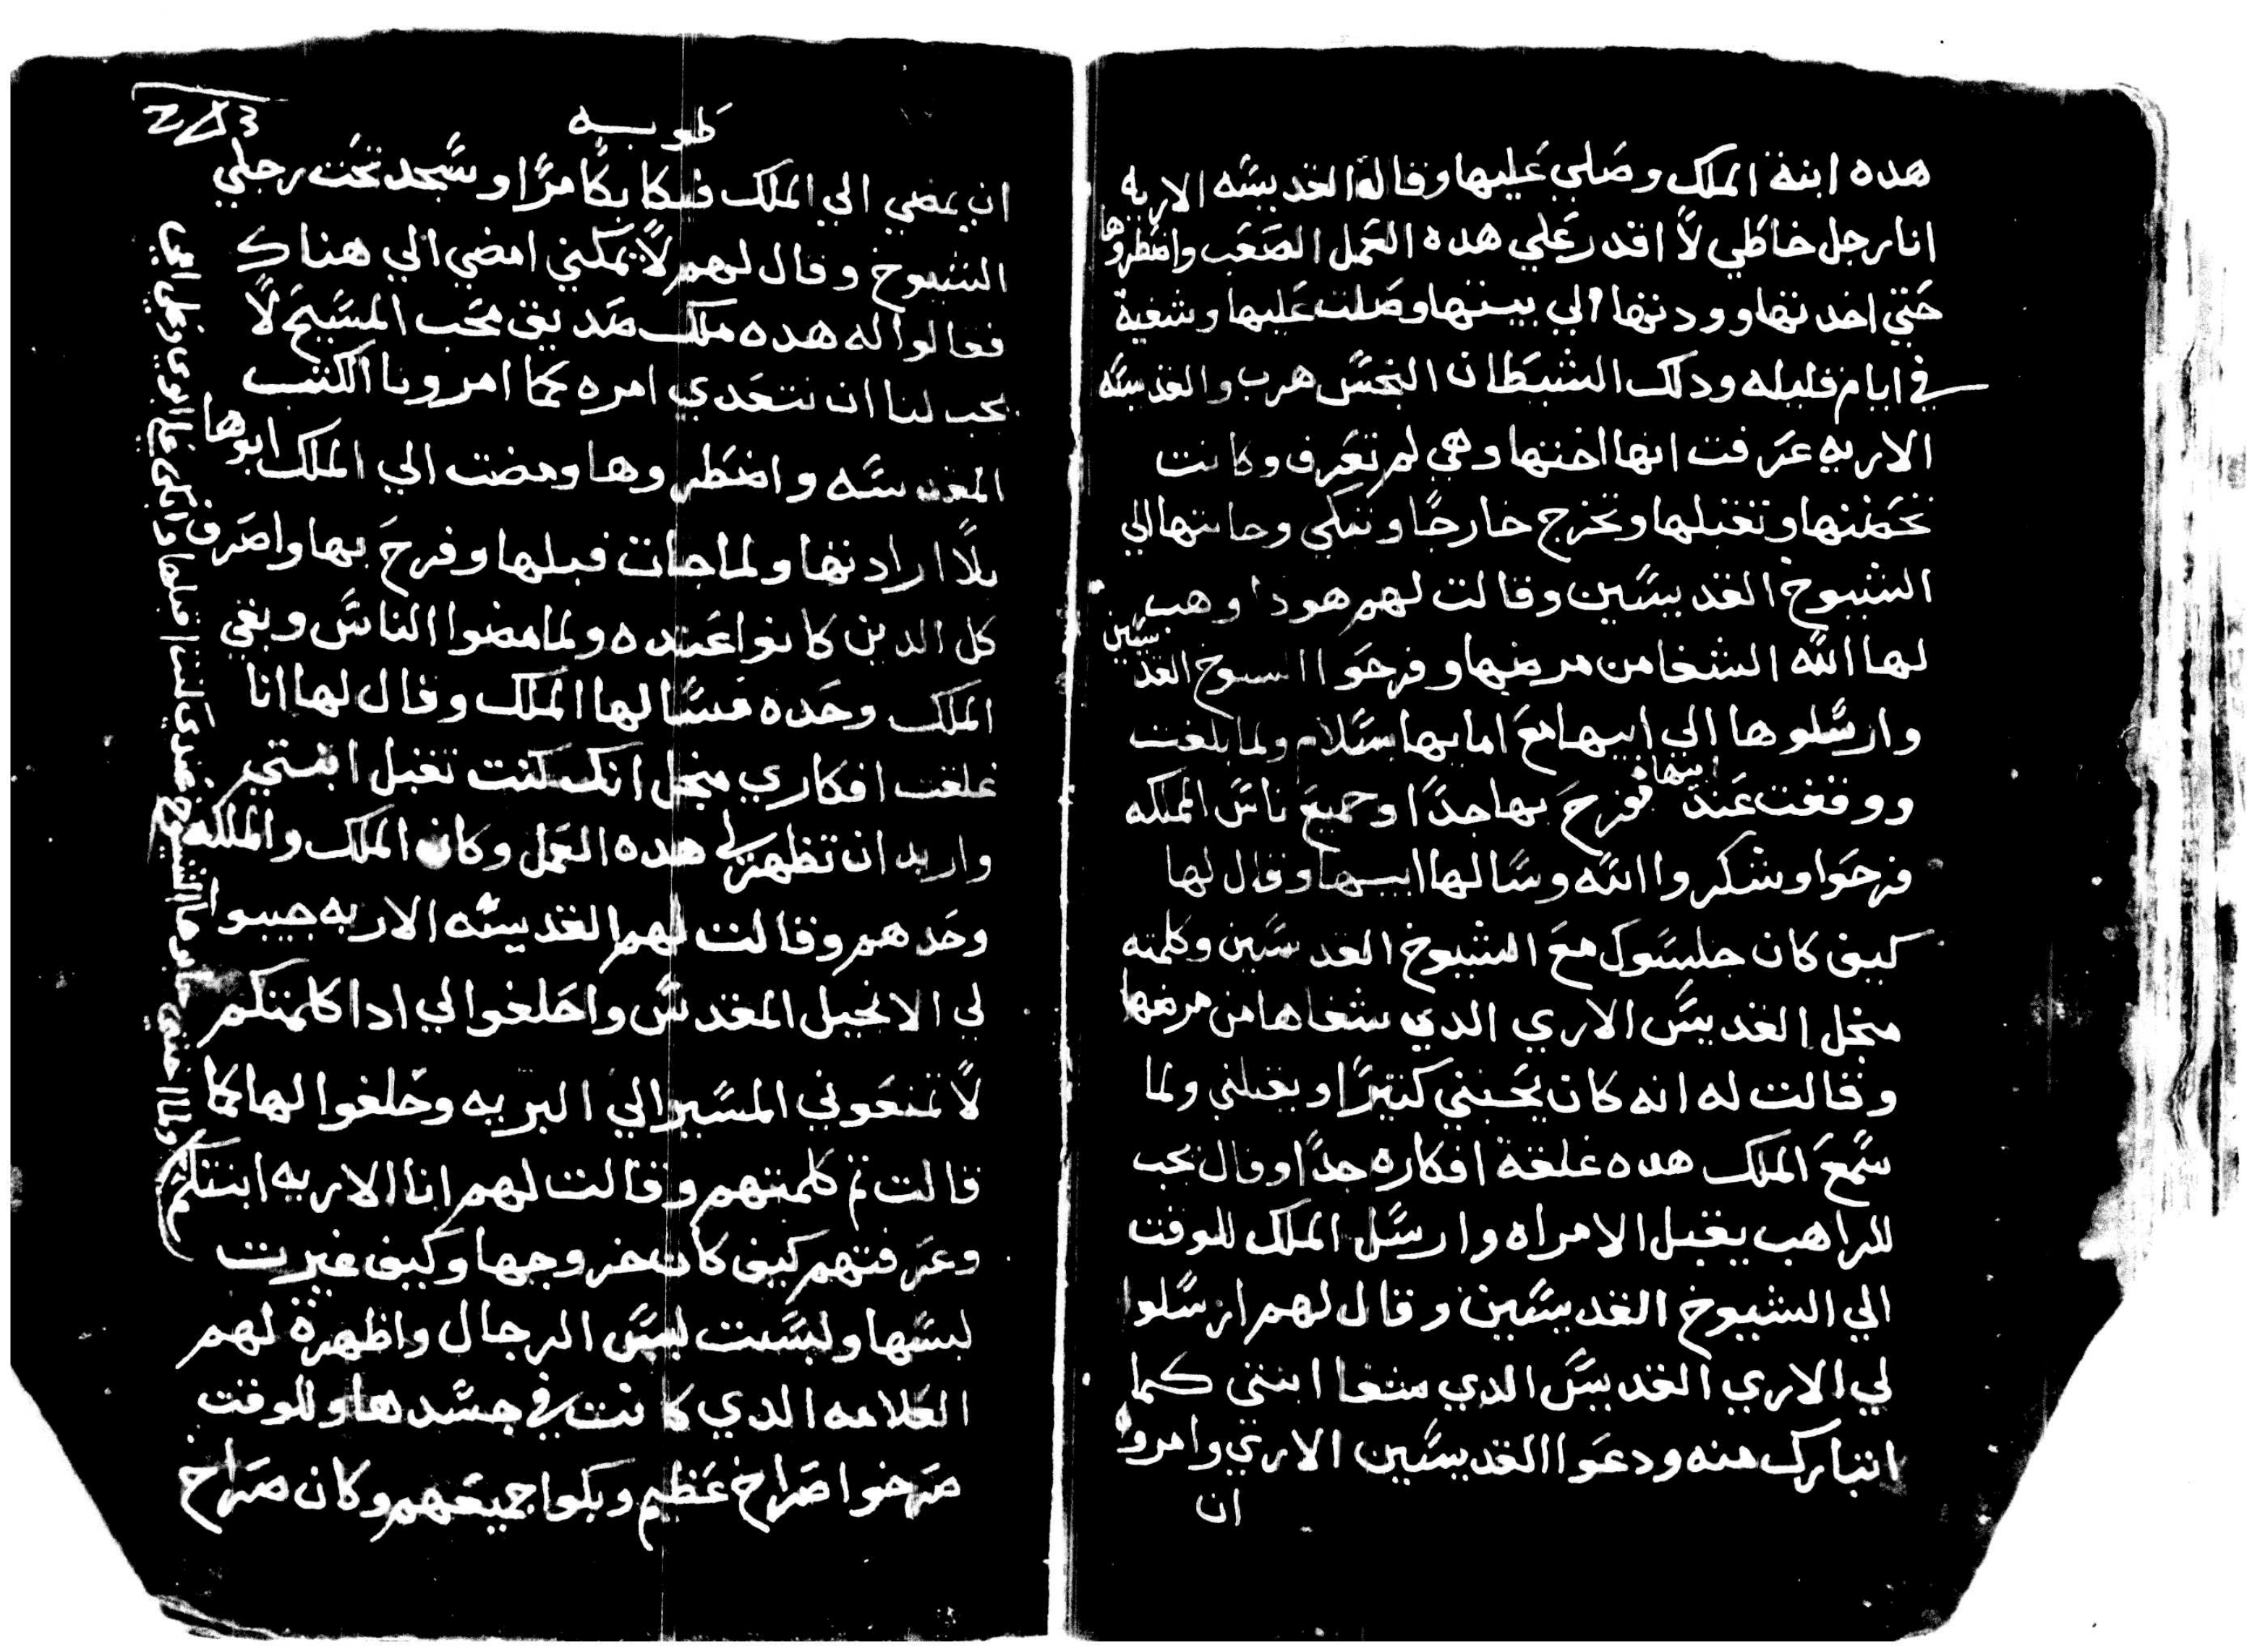 هده ابنة الملك وصلي عليها وقالة القديسه الاريه
انا رجل خاطي لا اقدر علي هده العمل الصعب واضطروها
حتي اخدتها وودتها الي بيتها وصلت عليها وشفية
في ايام قليله ودلك الشيطان النجس هرب والقديسه
الاريه عرفت انها اختها وهي لم تعرف وكانت
تحضنها وتقبلها وتخرج خارجا وتبكي وجابتها الي
الشيوخ القديسين وقالت لهم هودا وهب
لها الله الشفا من مرضها وفرحوا الشيوخ القديسين
وارسلوها الي ابيها مع امايها بسلام ولما بلغت
ووقفت عند ابيها فرح بها جدا وجميع ناس المملكه
فرحوا وشكروا الله وسالها ابيها وقال لها
كيف كان جلسوك مع الشيوخ القديسين وكلمته
منجل القديس الاري الدي شفاها من مرضها
وقالت له انه كان يحبني كتيرا ويقبلني ولما
سمع الملك هده غلقة افكاره جدا وقال يجب
للراهب يقبل الامراه وارسل الملك للوقت
الي الشيوخ القديسين وقال لهم ارسلوا
لي الاري القديس الدي شفا ابنتي كما
اتبارك منه ودعوا القديسين الاري وامروا
ان
طوبه
283
ان يمضي الي الملك فبكا بكا مرا وسجد تحت رجلي
الشيوخ وقال لهم لا يمكني امضي الي هناك
فقالوا له هده ملك صديق محب المسيح لا
يجب لنا ان نتعدي امره كما امرونا الكتب
المقدسه واضطروها ومضت الي الملك ابوها
بلا ارادتها ولما جات قبلها وفرح بها واصرف
كل الدين كانوا عنده ولما مضوا الناس وبقي
الملك وحده فسالها الملك وقال لها انا
غلقت افكاري منجل انك كنت تقبل ابنتي
واريد ان تظهر لي هده العمل وكان الملك والملكه
وحدهم وقالت لهم القديسه الاريه جيبوا
لي الانجيل المقدس واحلفوا لي ادا كلمتكم
لا تمنعوني المسير الي البريه وحلفوا لها كما
قالت تم كلمتهم وقالت لهم انا الاريه ابنتكم
وعرفتهم كيف كان خروجها وكيف غيرت
لبسها ولبست لبس الرجال واظهرة لهم
العلامه الدي كانت في جسدها وللوقت
صرخوا صراخ عظيم وبكوا جميعهم وكان صراخ